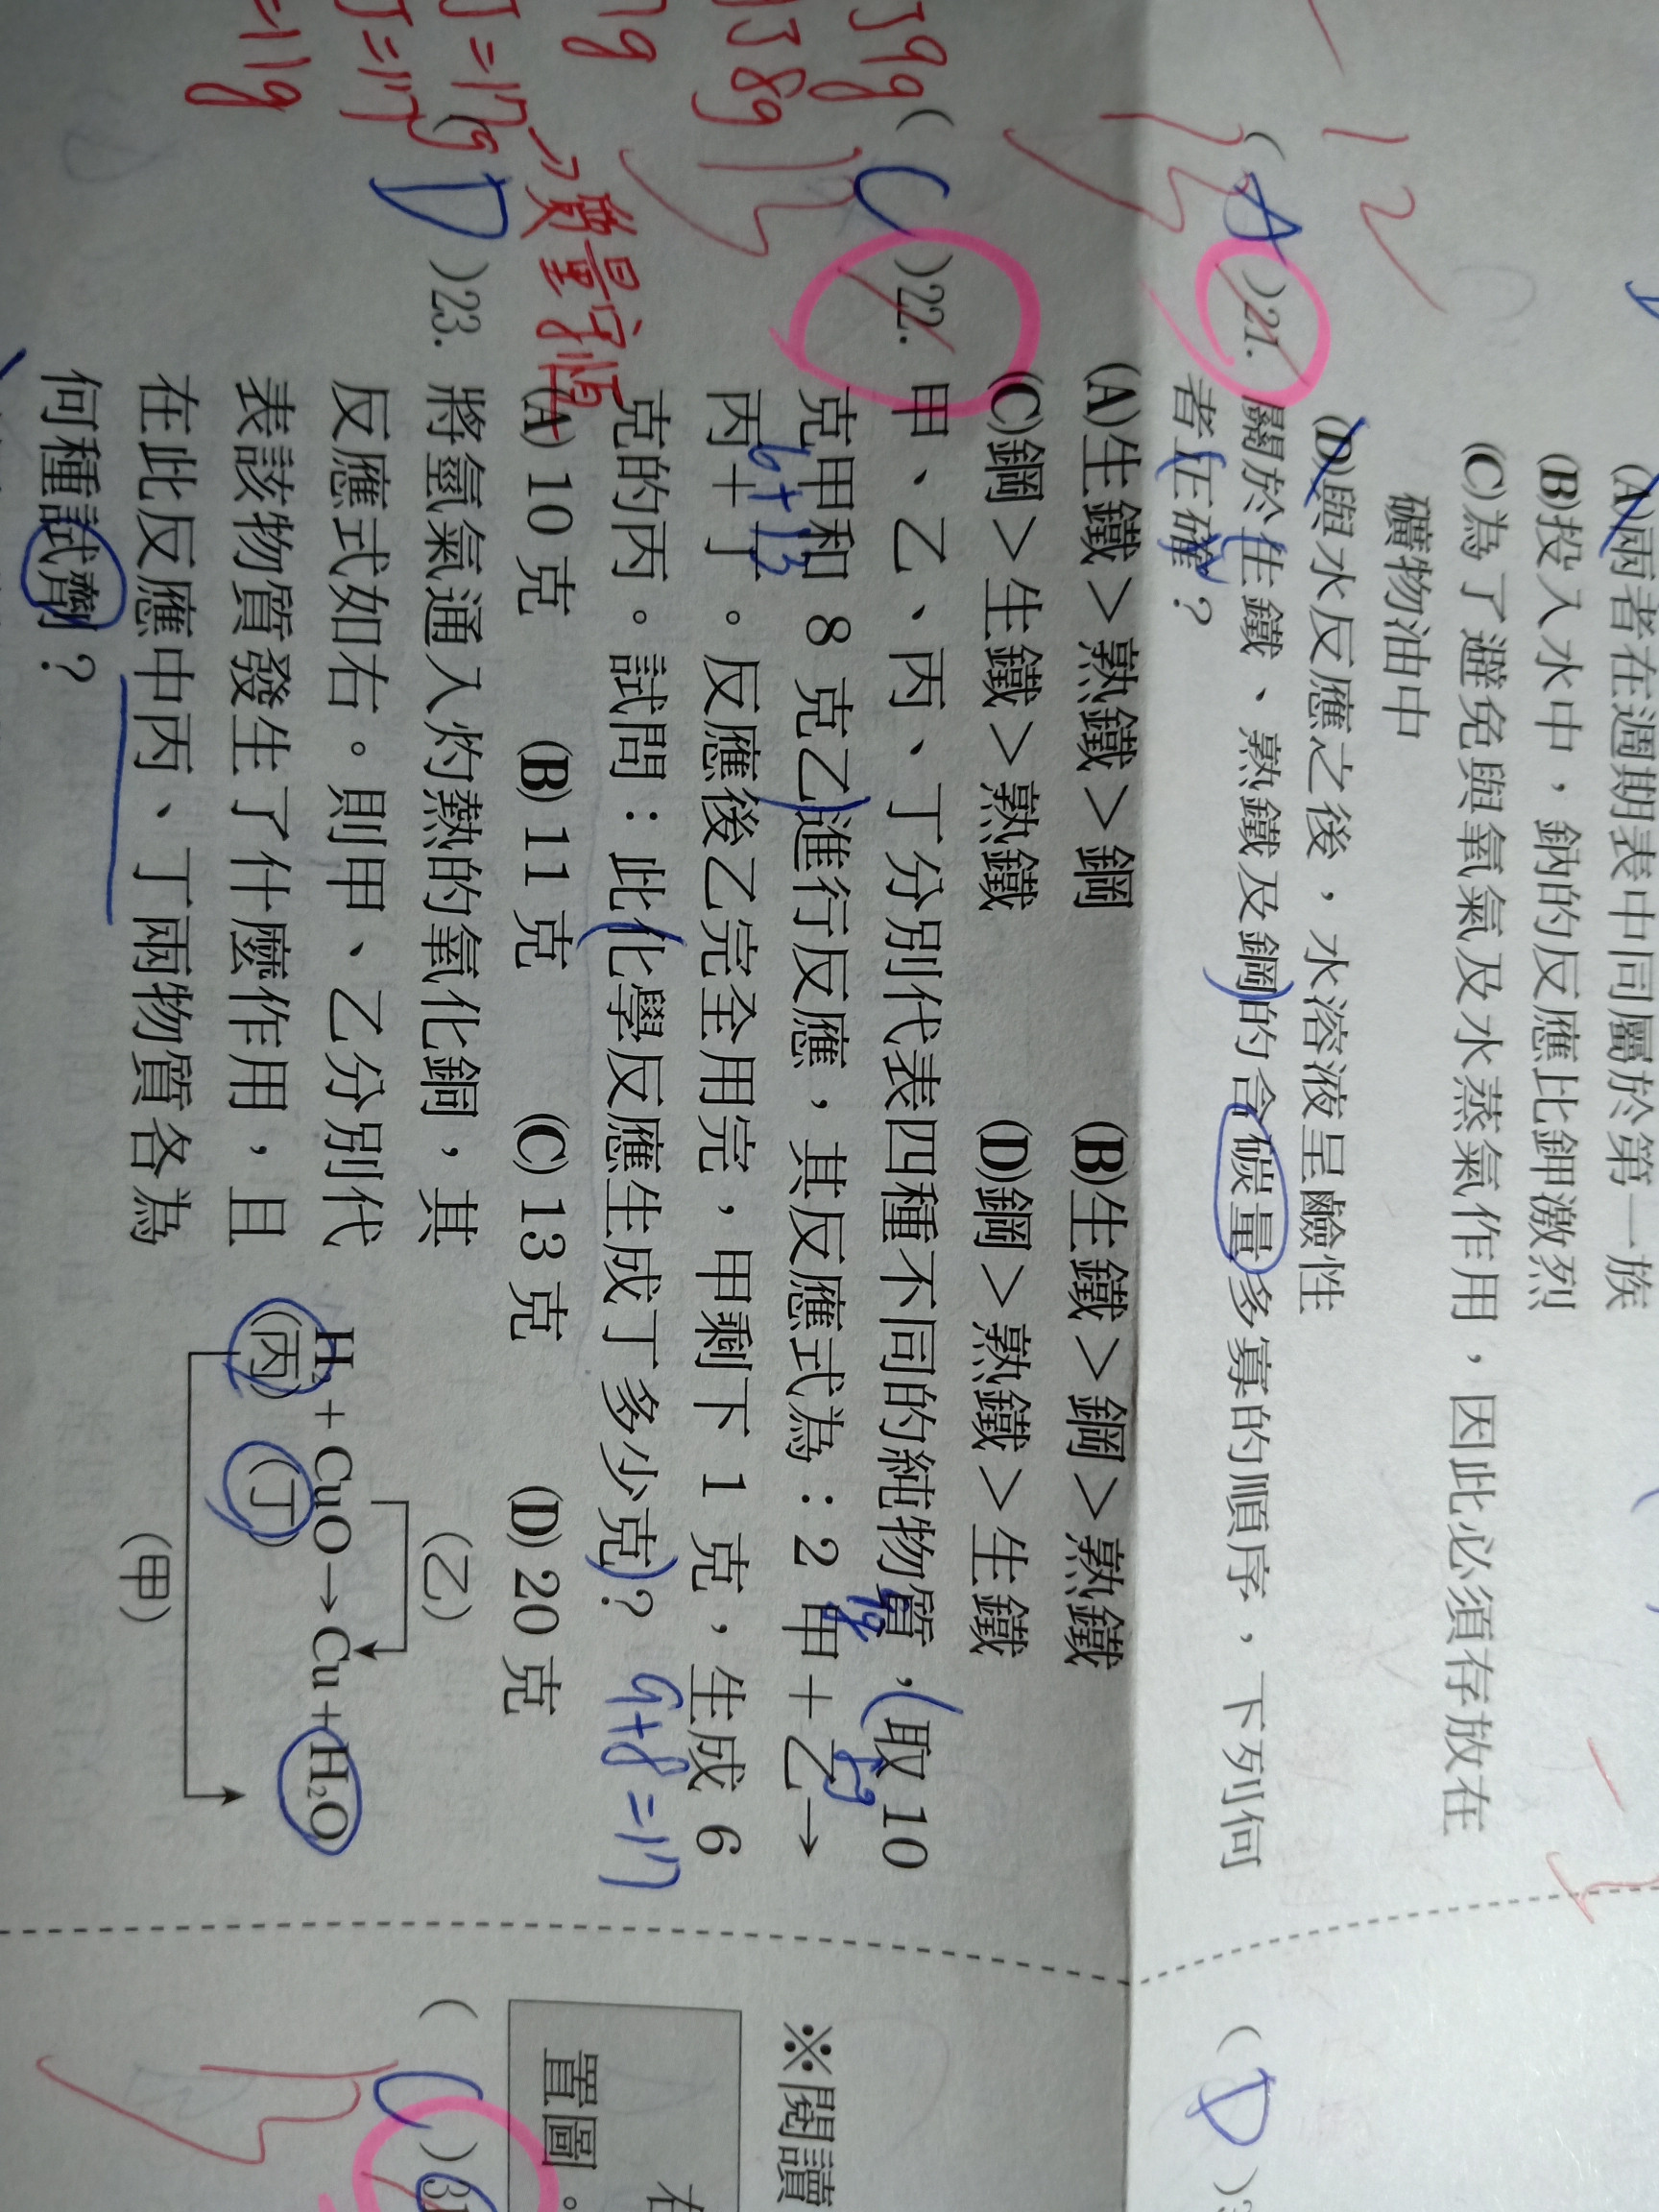 (A)兩者在週期表中同屬於第一族
(B)投入水中，鈉的反應比鉀激烈
(C)為了避免與氧氣及水蒸氣作用，因此必須存放在
礦物油中
(D)與水反應之後，水溶液呈鹼性
( A )21. 關於生鐵、熟鐵及鋼的含碳量多寡的順序，下列何
者正確？
(A)生鐵＞熟鐵＞鋼 (B)生鐵＞鋼＞熟鐵
(C)鋼＞生鐵＞熟鐵 (D)鋼＞熟鐵＞生鐵
( C )22. 甲、乙、丙、丁分別代表四種不同的純物質，取 10
克甲和 8 克乙進行反應，其反應式為：2 甲＋乙→
丙＋丁。反應後乙完全用完，甲剩下 1 克，生成 6
克的丙。試問：此化學反應生成丁多少克？
9+8=17
(A) 10 克 (B) 11 克 (C) 13 克 (D) 20 克
→質量守恆
( D )23. 將氫氣通入灼熱的氧化銅，其
反應式如右。則甲、乙分別代
表該物質發生了什麼作用，且
在此反應中丙、丁兩物質各為
何種試劑？
(乙)
H₂ + CuO → Cu + H₂O
(丙) (丁)
(甲)
※閱讀
置圖。